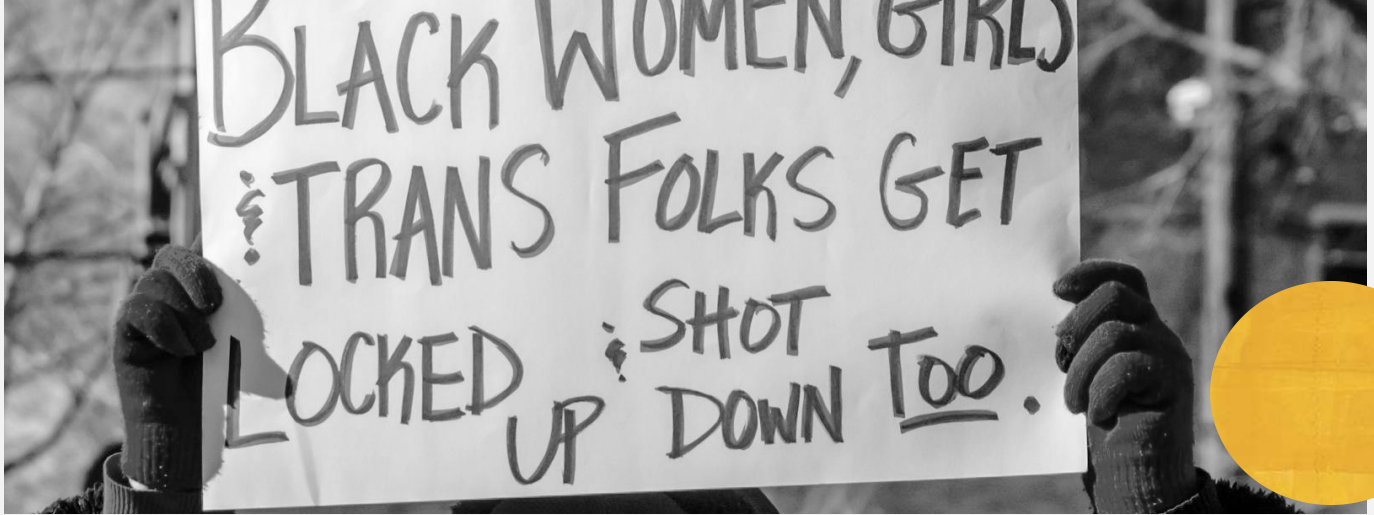 BLACK WOMEN, GIRLS
& TRANS FOLKS GET
LOCKED UP & SHOT DOWN TOO.